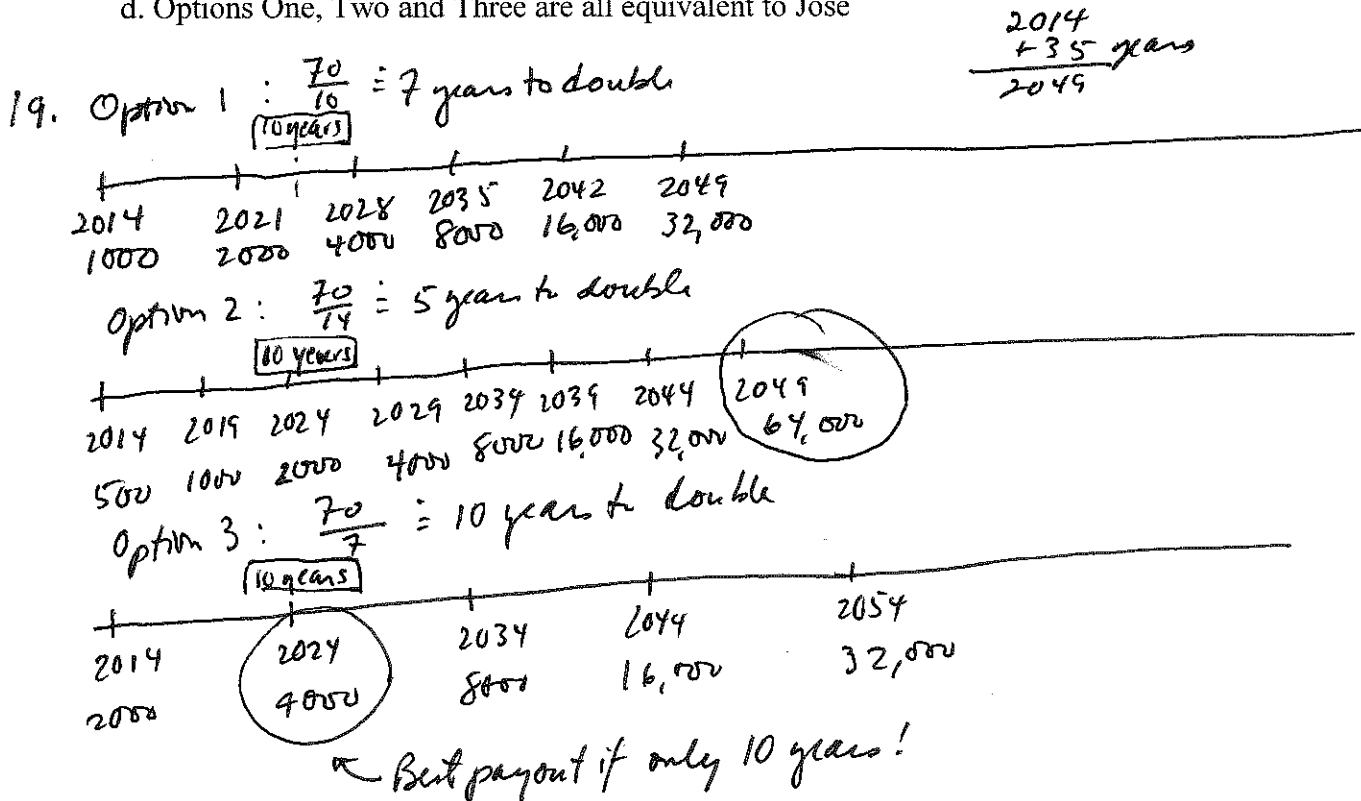 d. Options One, Two and Three are all equivalent to Jose
2014
+35 years
2049
19. Option 1 : 70/10 ≐ 7 years to double
10 years
2014 2021 2028 2035 2042 2049
1000 2000 4000 8000 16,000 32,000
Option 2 : 70/14 ≐ 5 years to double
10 years
2014 2019 2024 2029 2034 2039 2044 2049
500 1000 2000 4000 8000 16,000 32,000 64,000
Option 3 : 70/7 ≐ 10 years to double
10 years
2014 2024 2034 2044 2054
2000 4000 8000 16,000 32,000
← Best payout if only 10 years!